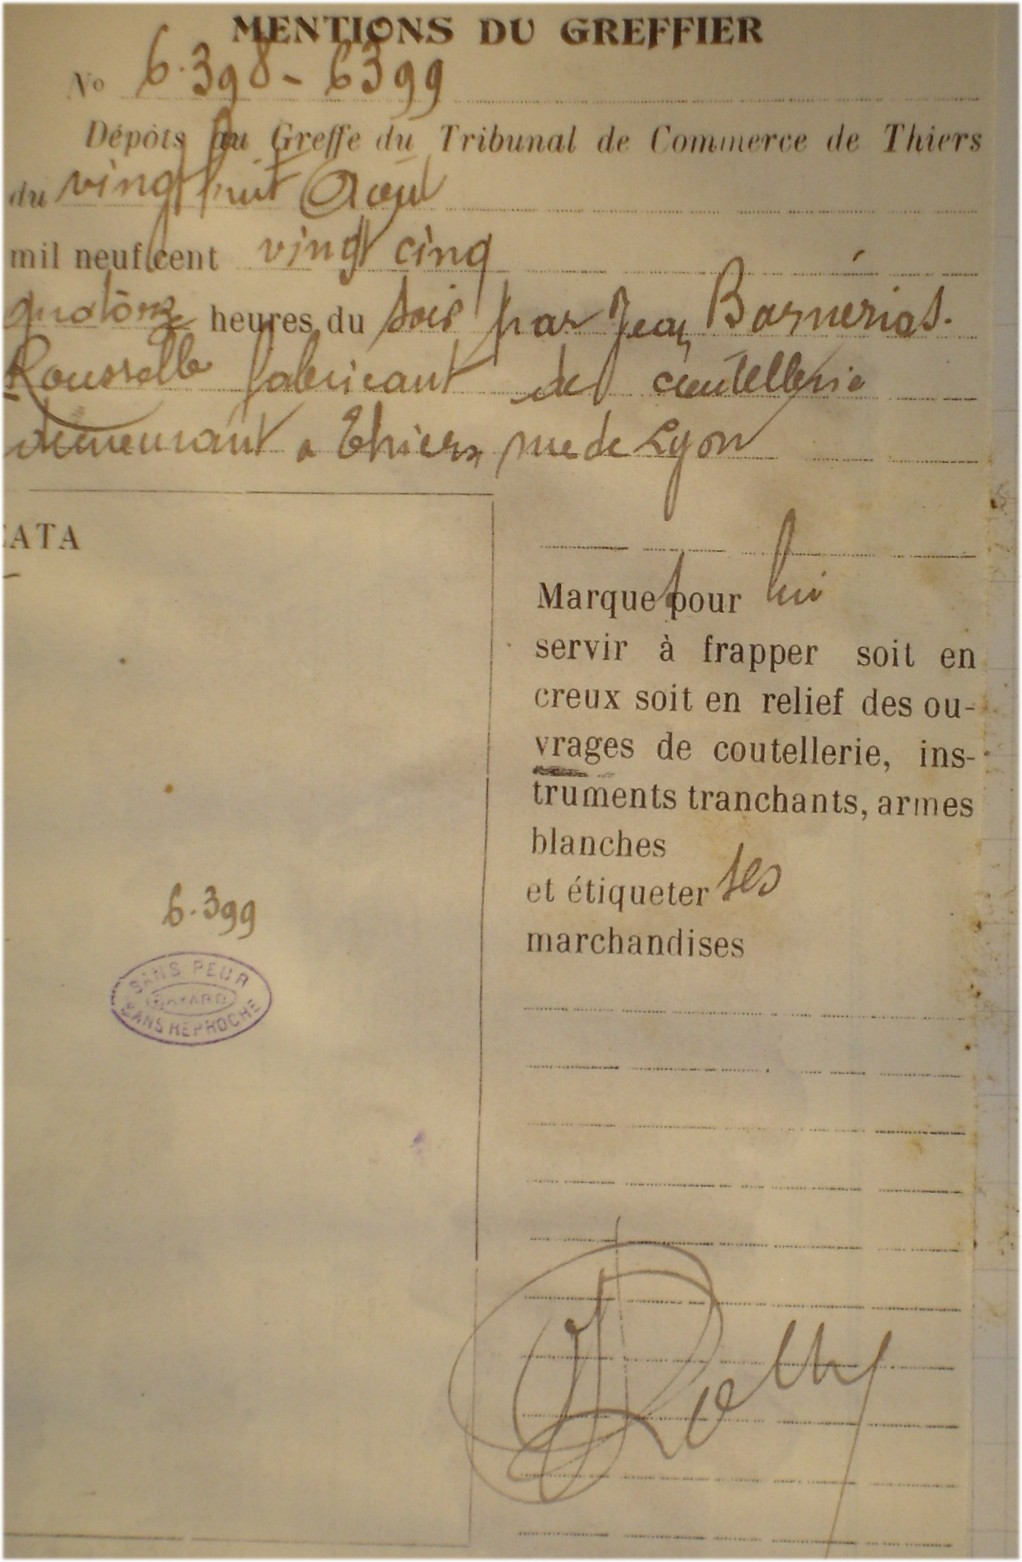 MENTIONS DU GREFFIER
No 6.398 - 6399
Dépôts au Greffe du Tribunal de Commerce de Thiers
du vingt huit Août
mil neuf cent vingt cinq
quatorze heures du soir par Jean Barnérias.
Rousselle fabricant de coutellerie
demeurant a Thiers rue de Lyon
CATA
Marque pour lui
servir à frapper soit en
creux soit en relief des ou-
vrages de coutellerie, ins-
truments tranchants, armes
blanches
et étiqueter ses
marchandises
6.399
SANS PEUR
BAYARD
SANS REPROCHE